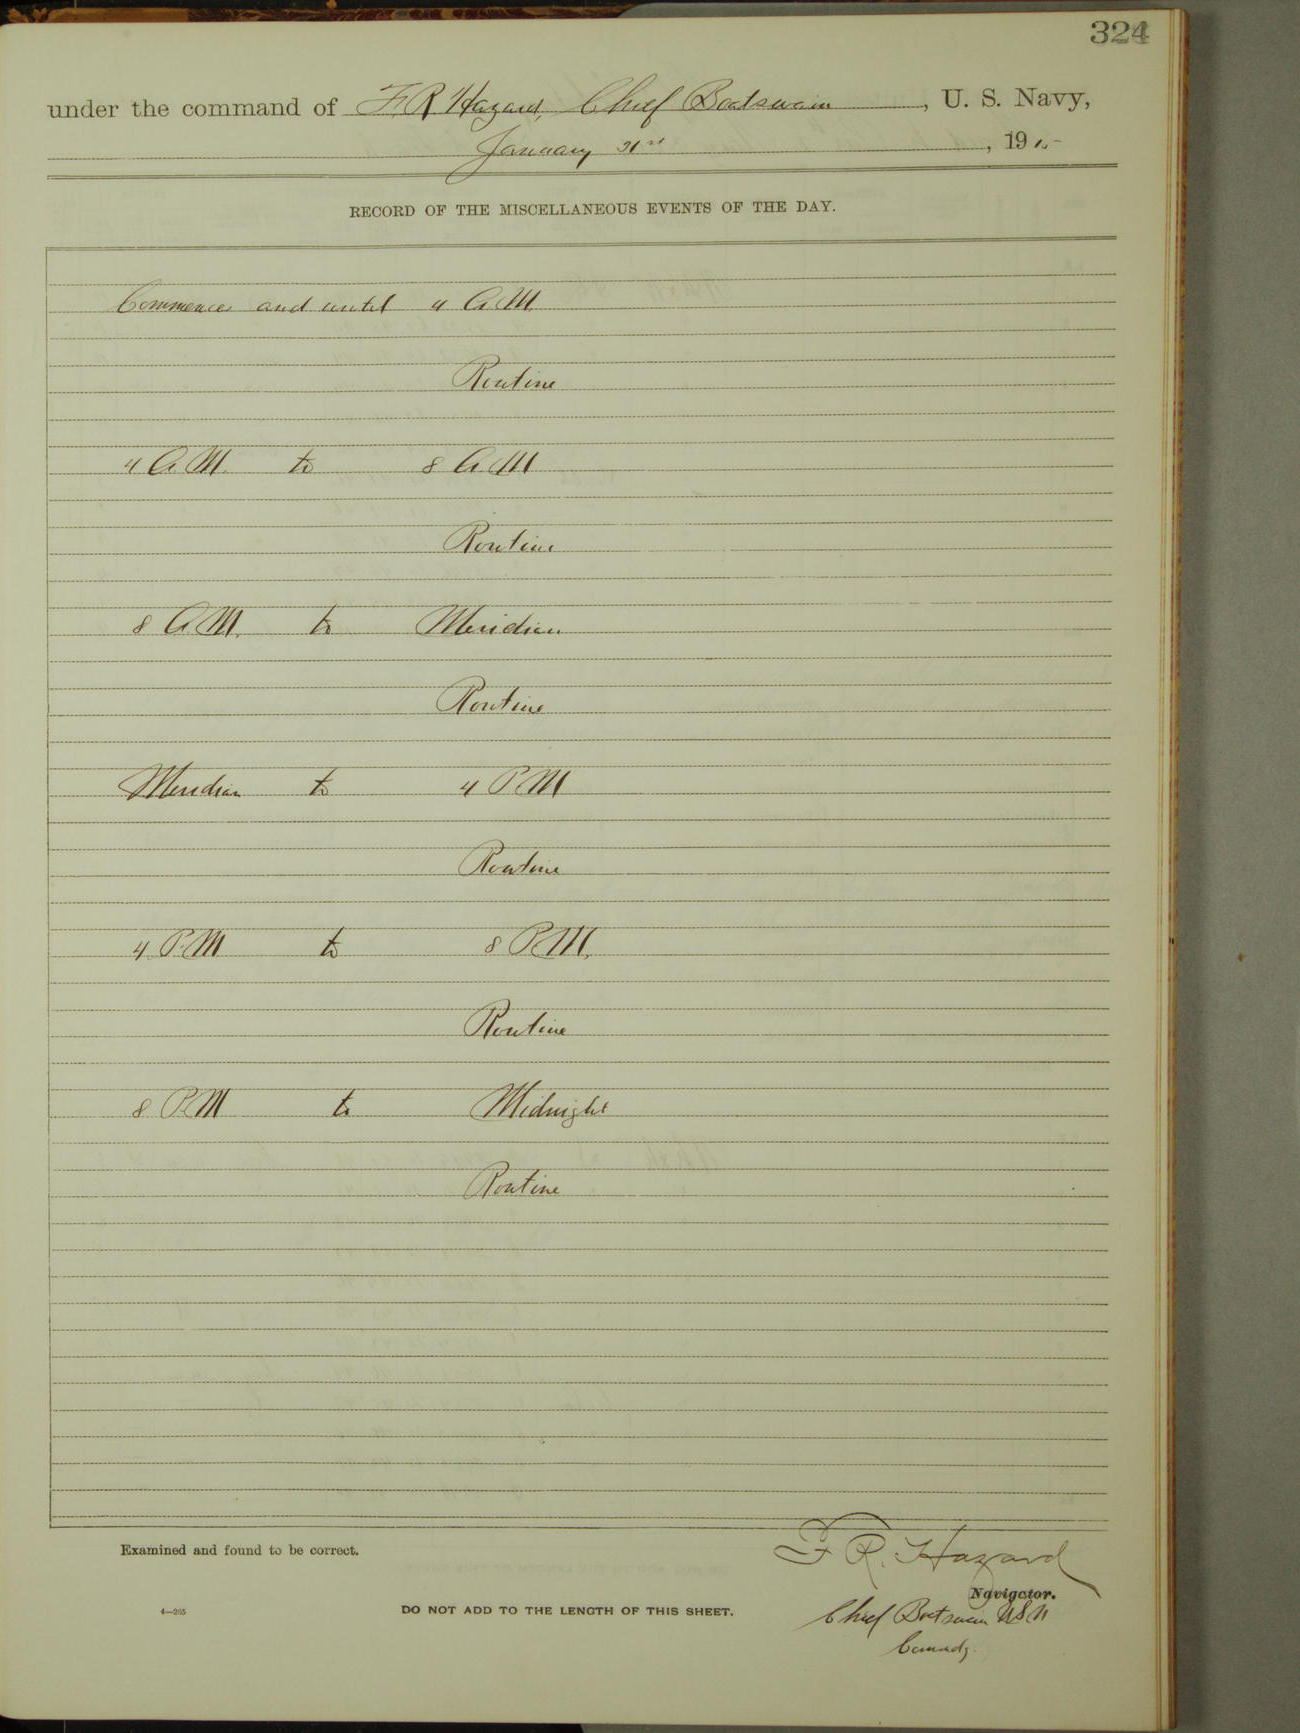 324
under the command of F. R. Hazard, Chief Boatswain, U. S. Navy,
January 31st, 1915
RECORD OF THE MISCELLANEOUS EVENTS OF THE DAY.
Commence and until 4 A.M.
Routine
4 A.M. to 8 A.M
Routine
8 A.M. to Meridian
Routine
Meridian to 4 P.M
Routine
4 P.M to 8 P.M.
Routine
8 P.M to Midnight
Routine
Examined and found to be correct.
F. R. Hazard
Navigator.
4—265
DO NOT ADD TO THE LENGTH OF THIS SHEET.
Chief Boatswain USN
Comndg.